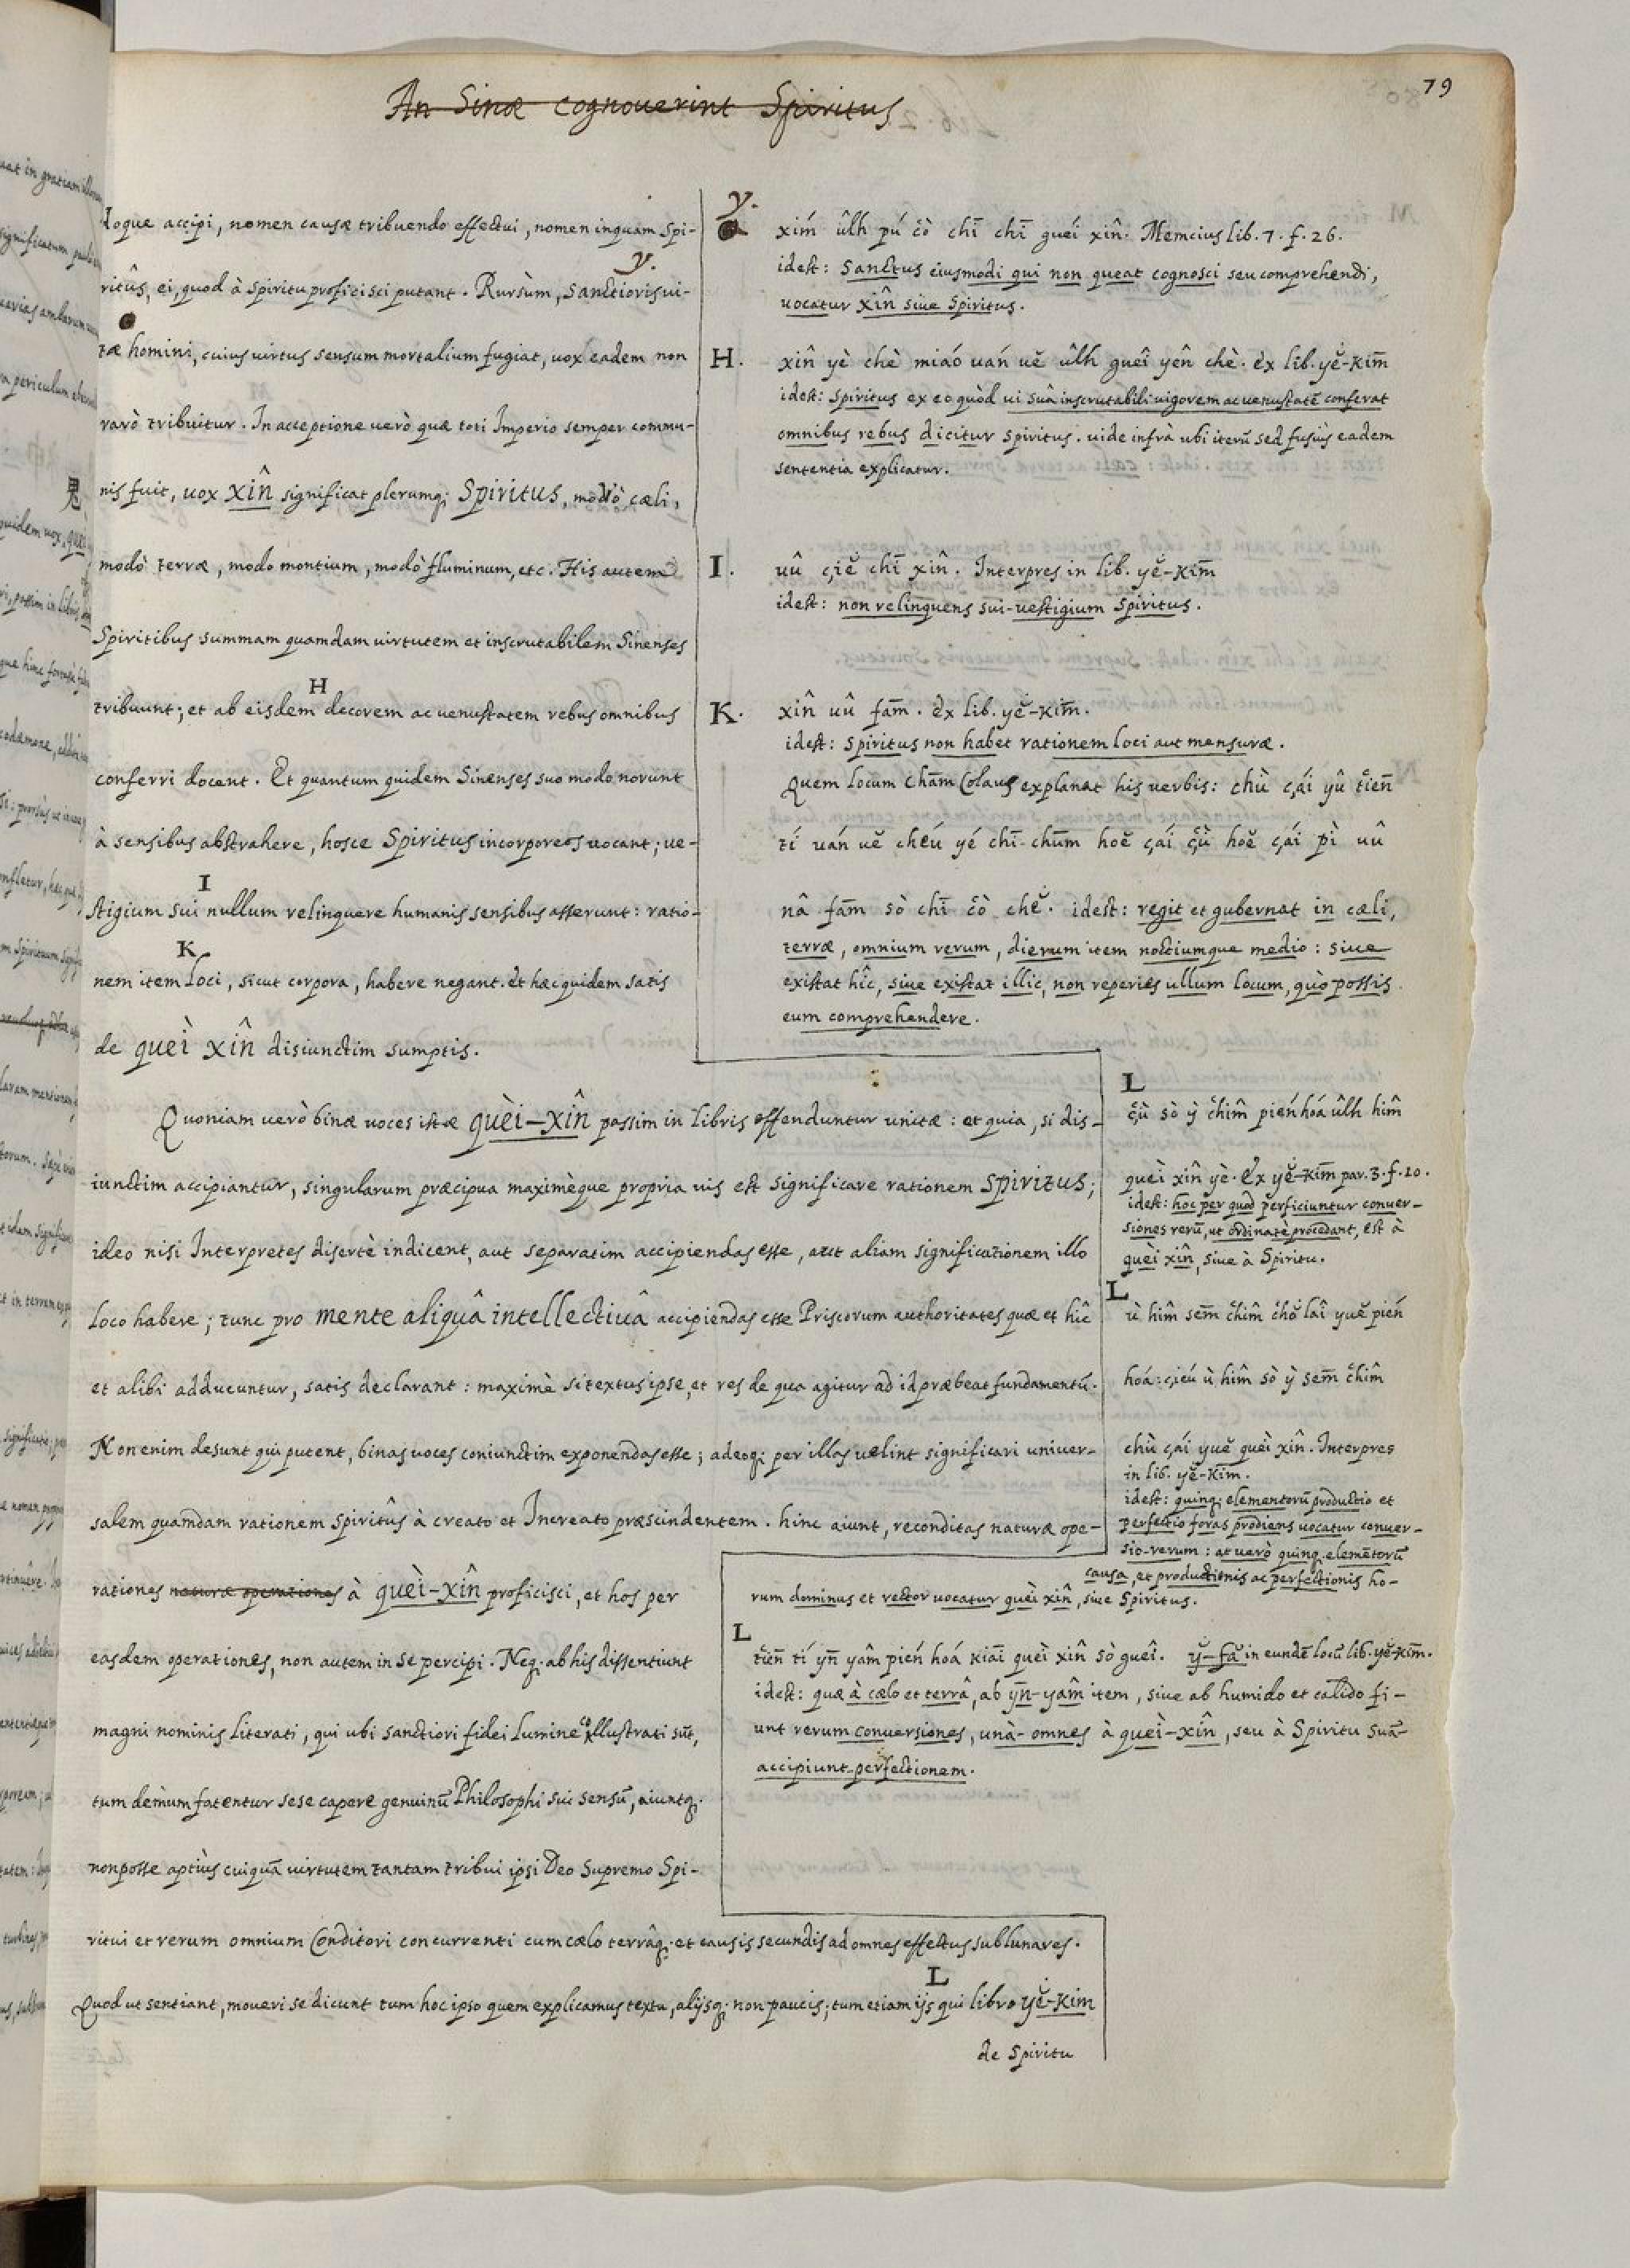 79
An Sinæ cognouerint Spiritus
loque accipi, nomen causæ tribuendo effectui, nomen inquam Spi-
ritûs, ei, quod à Spiritu proficisci putant. Rursùm, Sanctioris ui-
y.
tæ homini, cuius uirtus sensum mortalium fugiat, uox eadem non
rarò tribuitur. In acceptione uerò quæ toti Imperio semper commu-
nis fuit, uox xîn significat plerumq; Spiritus, modò cæli,
modò terræ, modo montium, modò fluminum, etc. His autem
Spiritibus summam quamdam uirtutem et inscrutabilem Sinenses
H
tribuunt; et ab eisdem decorem ac uenustatem rebus omnibus
conferri docent. Et quantum quidem Sinenses suo modo norunt
à sensibus abstrahere, hosce Spiritus incorporeos uocant; ue-
I
stigium sui nullum relinquere humanis sensibus asserunt: ratio-
K
nem item Loci, sicut corpora, habere negant. et hæc quidem satis
de quèi xîn disiunctim sumptis.
Quoniam uerò binæ uoces istæ quèi-xîn passim in libris offenduntur unitæ: et quia, si dis-
iunctim accipiantur, singularum præcipua maximèque propria uis est significare rationem Spiritus;
ideo nisi Interpretes disertè indicent, aut separatim accipiendas esse, aut aliam significationem illo
loco habere; tunc pro mente aliquâ intellectiuâ accipiendas esse Priscorum authoritates quæ et hîc
et alibi adducuntur, satis declarant: maximè si textus ipse, et res de qua agitur ad id præbeat fundamentũ.
Non enim desunt qui putent, binas uoces coniunctim exponendas esse; adeoq; per illas uelint significari uniuer-
salem quamdam rationem spiritûs à creato et Increato præscindentem. hinc aiunt, reconditas naturæ ope-
rationes naturæ operationes à quèi-xîn proficisci, et hos per
easdem operationes, non autem in se percipi. Neq; ab his dissentiunt
magni nominis Literati, qui ubi sanctiori fidei lumine collustrati sũt,
tum demum fatentur sese capere genuinũ Philosophi sui sensũ, aiuntq;
non posse aptiùs cuiquã uirtutem tantam tribui ipsi Deo Supremo Spi-
ritui et rerum omnium Conditori concurrenti cum cælo terrâq; et causis secundis ad omnes effectus sublunares.
L
Quod ut sentiant, moueri se dicunt tum hoc ipso quem explicamus textu, alijsq; non paucis; tum etiam ijs qui libro yĕ-kim
de Spiritu
y.
xím ûlh pú cò chī chī gueí xîn. Memcius lib. 7. f. 26.
idest: Sanctus eiusmodi qui non queat cognosci seu comprehendi,
uocatur xîn siue Spiritus.
H. xîn yè chè miáo uán uĕ ûlh gueî yên chè. ex lib. yĕ-kim̄
idest: Spiritus ex eo quòd ui suâ inscrutabili uigorem ac uenustatē conferat
omnibus rebus dicitur Spiritus. uide infrà ubi iterũ sed fusiùs eadem
sententia explicatur.
I. uû çiĕ chī xîn. Interpres in lib. yĕ-kim̄
idest: non relinquens sui-uestigium Spiritus.
K. xîn uû fam̄. ex lib. yĕ-kim̄.
idest: Spiritus non habet rationem loci aut mensuræ.
Quem locum Chām Colaus explanat his uerbis: chù çái yû tien̄
tí uán uĕ cheú yé chī-chūm hoĕ çái çù hoĕ çái pì uû
nâ fam̄ sò chī cò chĕ. idest: regit et gubernat in cæli,
terræ, omnium rerum, dierum item noctiumque medio: siue
existat hîc, siue existat illic, non reperies ullum locum, quò possis
eum comprehendere.
L
çù sò ỳ chîm pién hoá ûlh hîm
quèi xîn yè. Ex yĕ-kim̄ par. 3. f. 20.
idest: hoc per quod perficiuntur conuer-
siones rerũ, ut ordinatè procedant, est à
quèi xîn, siue à Spiritu.
L
ù hîm sem̄ chîm chŏ laî yuĕ pién
hoá: çiéu ù hîm sò ỳ sem̄ chîm
chù çái yuĕ quèi xîn. Interpres
in lib. yĕ-kim.
idest: quinq; elementorũ productio et
perfectio foras prodiens uocatur conuer-
sio-rerum: at uerò quinq; elemētorũ
causa, et productionis ac perfectionis ho-
rum dominus et rector uocatur quèi xîn, siue Spiritus.
L
tien̄ tí yn̄ yâm pién hoá kiaī quèi xîn sò gueî. ỳ-fã in eundē locũ lib. yĕ-kim̄.
idest: quæ à cælo et terrâ, ab yn̄-yâm item, siue ab humido et calido fi-
unt rerum conuersiones, unà-omnes à quèi-xîn, seu à Spiritu suã
accipiunt perfectionem.
鬼